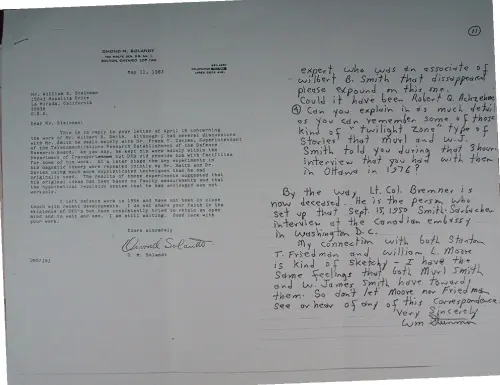 OMOND M. SOLANDT
BOLTON, ONTARIO
May 11, 1983
Mr. William S. Steinman
15043 Rosalita Drive
La Mirada, California
90638
U.S.A.
Dear Mr. Steinman:
This is in reply to your letter of April 26 concerning
the work of Mr. Wilbert B. Smith. Although I had several discussions
with Mr. Smith he dealt mainly with Dr. Prince C.
of the Telecommunications Research Establishment of the Defence
Research Board. As you say, Mr. Smith worked separately within the
Department of Transport but DRB did provide him with facilities
for some of his work. At a later stage the key experiments in
his magnetic theory were repeated
using much more sophisticated techniques than he had
originally used. The results of these experiments suggested that
his original ideas had been based on faulty measurements and
the hypothetical results that he had were not
I left defence work in 1956 and have not been in close
touch with recent developments. I do not share your faith in the
existence of UFO's but have consistently tried to retain an open
mind and to wait and see. I am still waiting. Good luck with
your work.
Yours sincerely,
Omond Solandt
O. M. Solandt
OMS/
(11)
expert who was an associate of
Wilbert B. Smith that dissappeard
please expound on this one.
Could it have been Robert G.
④ Can you explain in as much detail
as you can remember some of those
kind of "twilight zone" type of
stories that Murl and W.J.
Smith told you during that 3 hour
interview that you had with them
in Ottawa in 1976?
By the way Lt. Col. Bremner is
now deceased. He is the person who
set up that Sept. 15, 1950 Smith-Sarbacher
interview at the Canadian embassy
in Washington D.C.
My connection with both Stanton
T. Friedman and William L. Moore
is kind of sketchy - I have the
same feelings that both Murl Smith
and W. James Smith have towards
them. So don't let Moore nor Friedman
see or hear of any of this correspondence
Very Sincerely
Wm Steinman